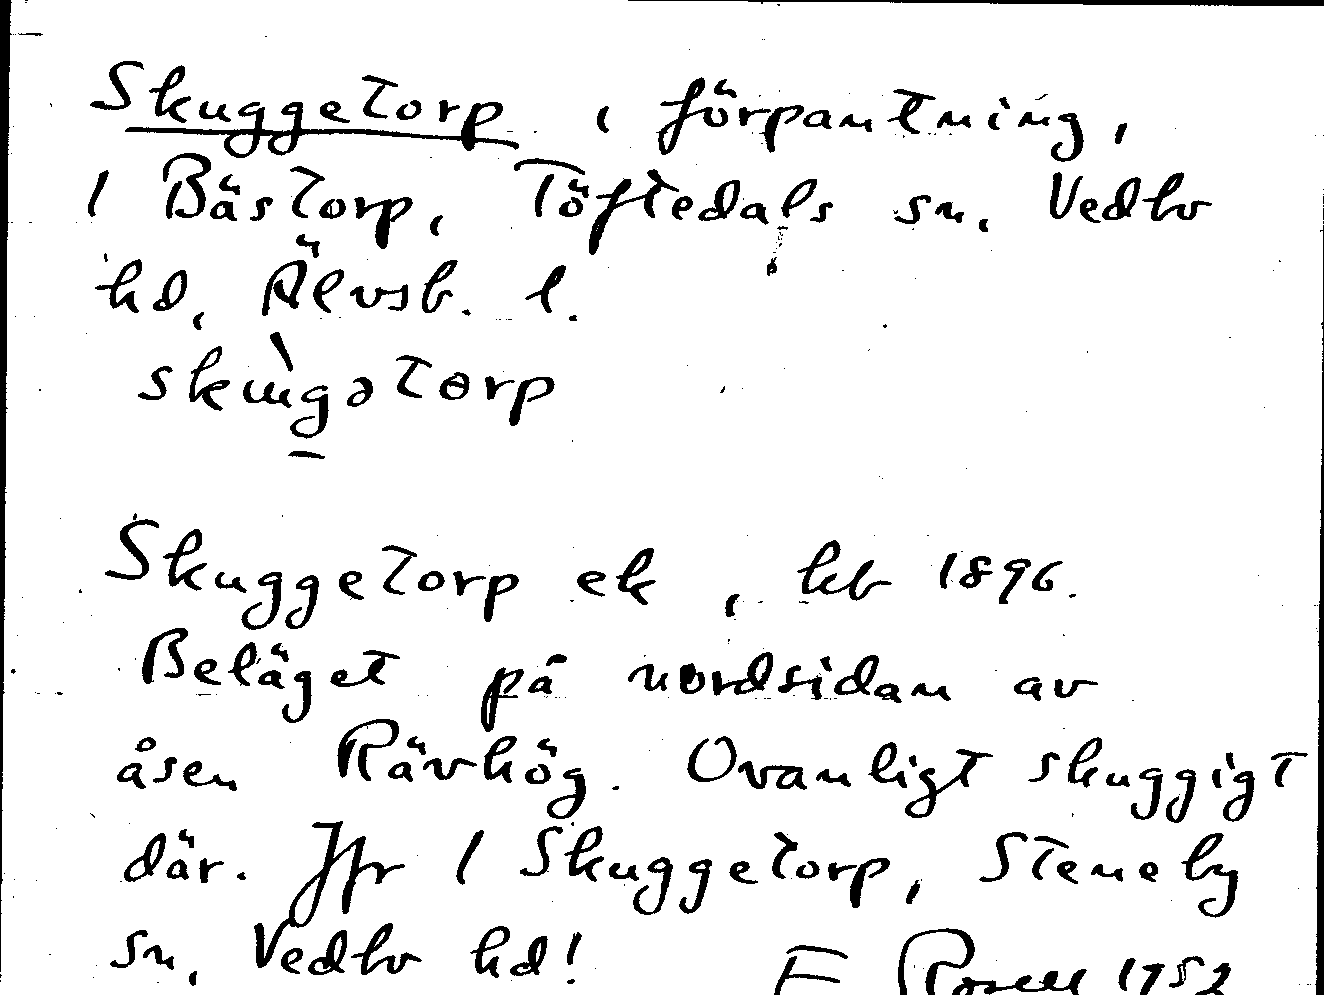 Skuggetorp, förpantning,
1 Bästorp, Töftedals sn, Vedbo
hd, Älvsb. l.
skùgətorp
Skuggetorp ek, kb 1896.
Beläget på nordsidan av
åsen Rävhög. Ovanligt skuggigt
där. Jfr 1 Skuggetorp, Steneby
sn, Vedbo hd!
E Rosell 1952